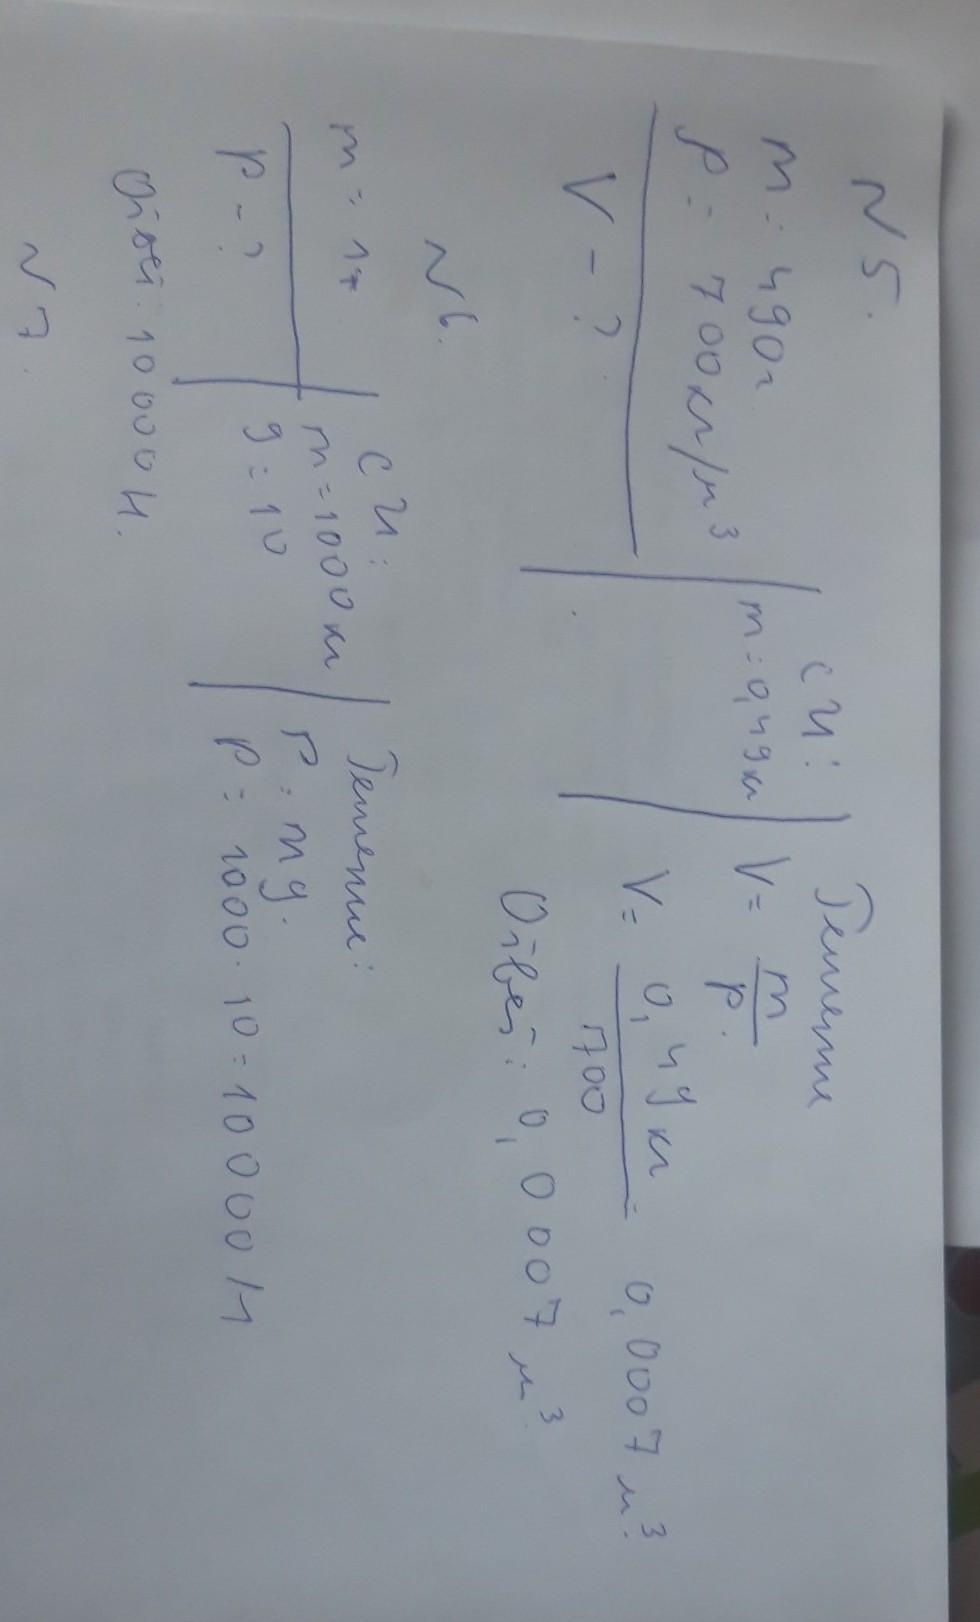 N 5.
m = 490г
ρ = 700кг/м³
V - ?
СИ:
m = 0,49кг
Решение
V = m/ρ.
V = 0,49кг/700 = 0,0007 м³.
Ответ: 0,0007 м³.
N 6.
m = 1т
P - ?
СИ:
m = 1000кг
g = 10
Решение:
P = mg.
P = 1000 · 10 = 10000 Н
Ответ: 10000 Н.
N 7.